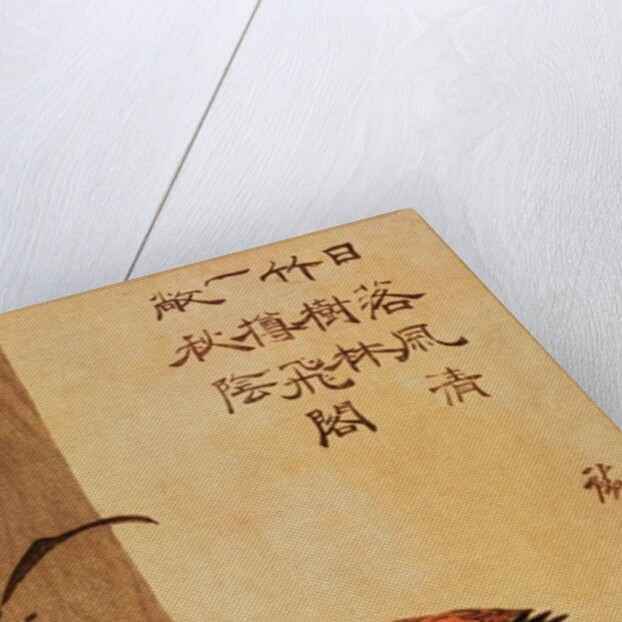 日落風清
竹樹林
一樽飛閣
敞秋陰